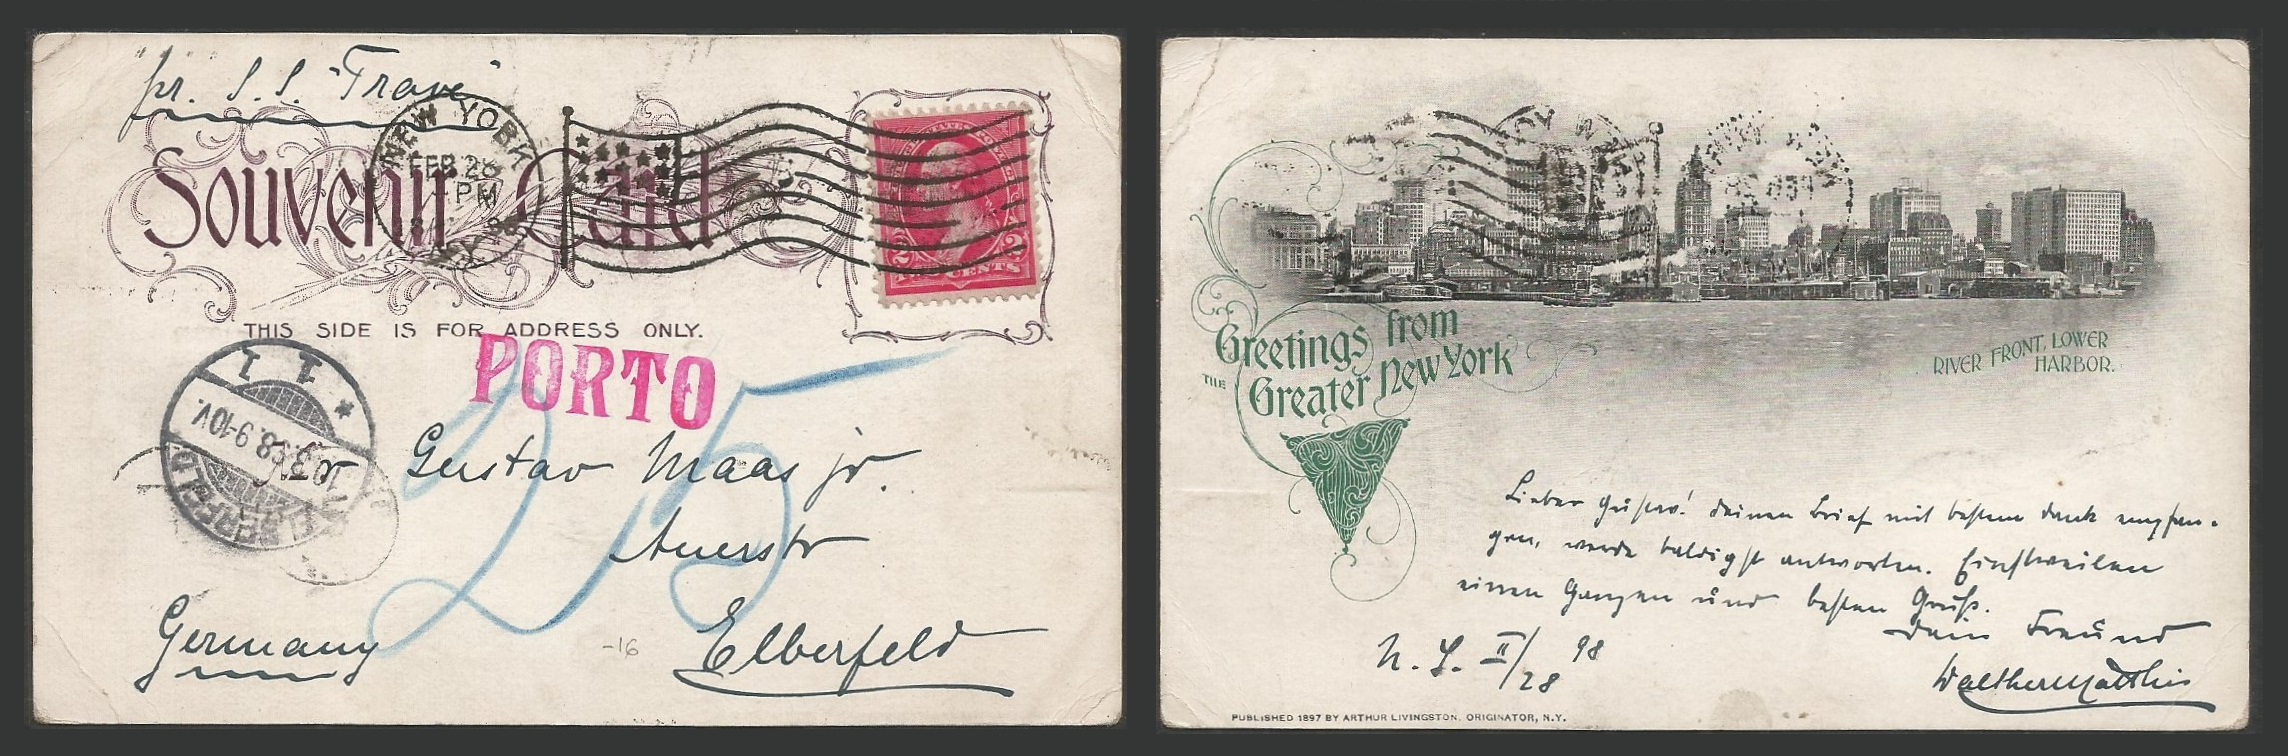 pr. S. S. "Trave"
Souvenir Card
NEW YORK
FEB 28
PM
2 CENTS 2
THIS SIDE IS FOR ADDRESS ONLY.
PORTO
25
1 1
9-10V.
ELBERFELD
Gustav Maas jr.
Auerstr
Elberfeld
Germany
-16
Greetings from
THE Greater New York
RIVER FRONT, LOWER
HARBOR.
Lieber Gustav! Deinen Brief mit bestem Dank empfan-
gen, werde baldigst antworten. Einstweilen
einen Ganzen und besten Gruß.
Dein Freund
Walther Matthis
N. Y. II/28 98
PUBLISHED 1897 BY ARTHUR LIVINGSTON, ORIGINATOR, N.Y.